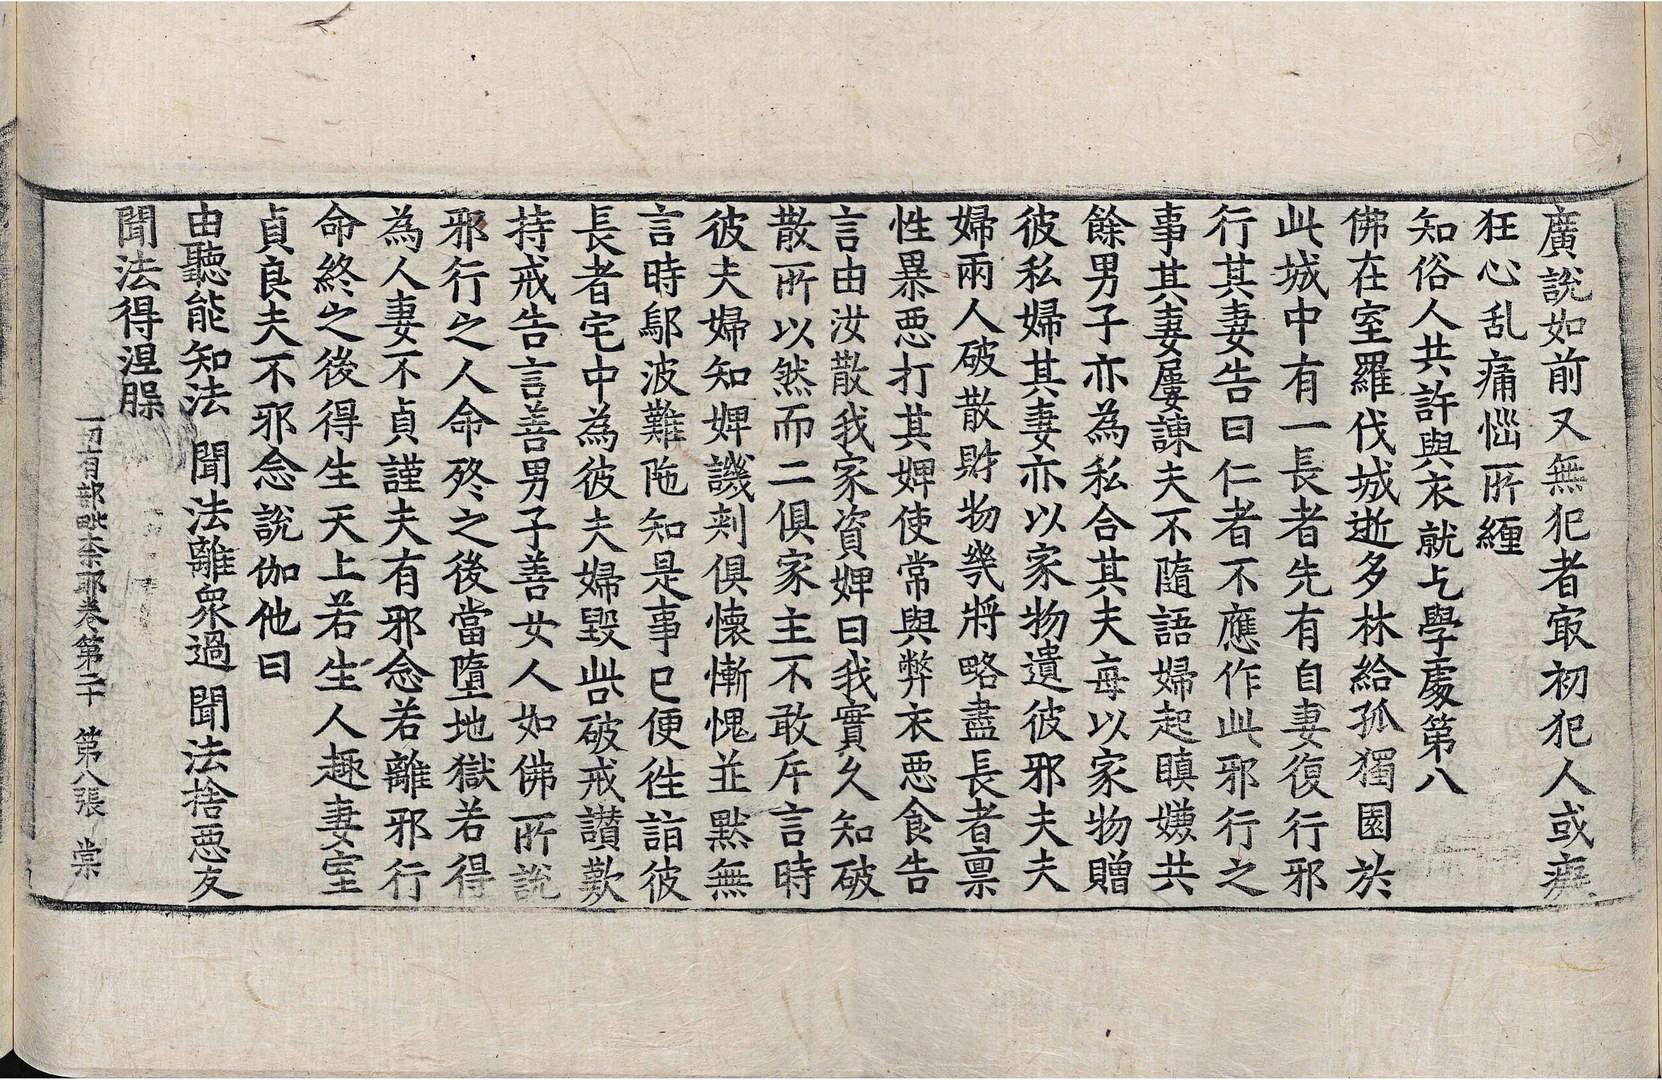 廣說如前又無犯者㝡初犯人或癡
狂心乱痛惱所纏
知俗人共許與衣就乞學處第八
佛在室羅伐城逝多林給孤獨園於
此城中有一長者先有自妻復行邪
行其妻告曰仁者不應作此邪行之
事其妻屢諫夫不隨語婦起瞋嫌共
餘男子亦為私合其夫每以家物贈
彼私婦其妻亦以家物遺彼邪夫夫
婦兩人破散財物幾將略盡長者禀
性暴惡打其婢使常與弊衣惡食告
言由汝散我家資婢曰我實久知破
散所以然而二俱家主不敢斥言時
彼夫婦知婢譏刾俱懷慚愧並黙無
言時鄔波難陁知是事已便徃詣彼
長者宅中為彼夫婦毀呰破戒讃歎
持戒告言善男子善女人如佛所說
邪行之人命終之後當墮地獄若得
為人妻不貞謹夫有邪念若離邪行
命終之後得生天上若生人趣妻室
貞良夫不邪念說伽他曰
由聽能知法 聞法離衆過 聞法捨惡友
聞法得涅槃
一切有部毗奈耶卷第二十 第八張 棠